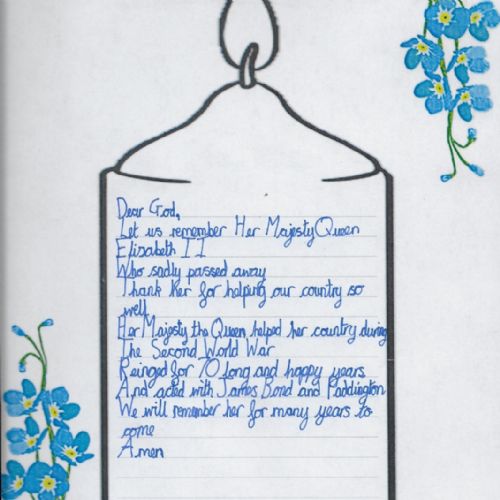 Dear God,
Let us remember Her Majesty Queen
Elizabeth II
Who sadly passed away
Thank her for helping our country so
well
Her Majesty the Queen helped her country during
The Second World War
Reinged for 70 long and happy years
And acted with James Bond and Paddington
We will remember her for many years to
come
Amen